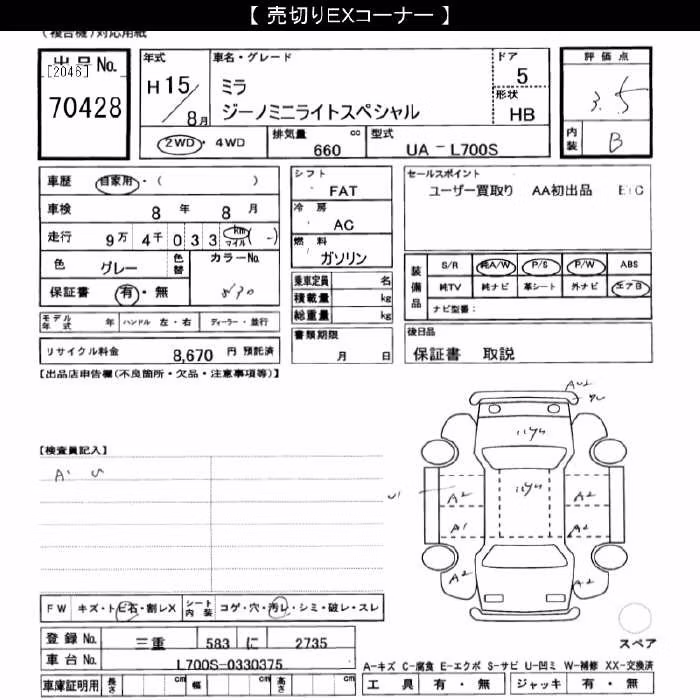 【 売切りEXコーナー 】
(複合機)対応用紙
出品No.
[2046]
70428
年式
H 15/8月
車名・グレード
ミラ
ジーノミニライトスペシャル
ドア
5
形状
HB
2WD・4WD
排気量
660 cc
型式
UA - L700S
評価点
3.5
内装
B
車歴 自家用・( )
車検 8 年 8 月
走行 9万 4千 0 3 3 km マイル ( - )
色 グレー 色替 カラーNo.
保証書 有・無
シフト
FAT
冷房
AC
燃料
ガソリン
乗車定員 名
積載量 kg
総重量 kg
セールスポイント
ユーザー買取り AA初出品 EtC
装備品
S/R 純A/W P/S P/W ABS
純TV 純ナビ 革シート 外ナビ エアB
ナビ型番:
モデル年式 年 ハンドル 左・右 ディーラー・並行
リサイクル料金 8,670 円 預託済
書類期限
月 日
後日品
保証書 取説
【出品店申告欄(不良箇所・欠品・注意事項等)】
【検査員記入】
A1 U
U1
A2 A2
A1 A2
A2 A2
FW キズ・トビ石・割レX シート内装 コゲ・穴・汚レ・シミ・破レ・スレ
登録 No. 三重 583 に 2735
車台 No. L700S-0330375
車庫証明用 長さ cm 幅 cm 高さ cm
スペア
A-キズ C-腐食 E-エクボ S-サビ U-凹ミ W-補修 XX-交換済
工具 有・無 ジャッキ 有・無